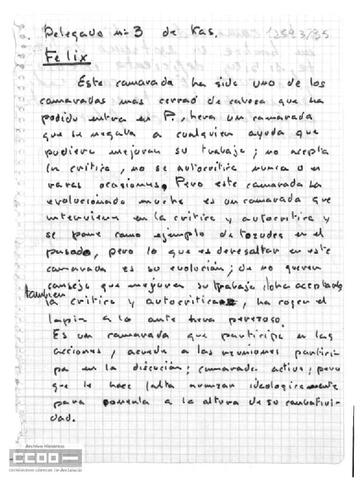 Delegado nº 3 de Kas.
Felix
Este camarada ha sido uno de los
camaradas mas cerrad de cabeza que ha
podido entrar en P., hera un camarada
que se negava a cualquier ayuda que
pudiera mejorar su trabajo; no acepta
la critica, no se autocritica nunca o en
raras ocasiones. Pero este camarada ha
evolucionado mucho es un camarada que
interviene en la critica y autocritica y
se pone como ejemplo de tozudez en el
pasado, pero lo que es de resaltar en este
camarada es su evolución; de no querer
consejo que mejorara su trabajo loha aceptado
tambien
la critica y autocritica, ha cogido el
lapiz a lo ante hera perezoso.
Es un camarada que participa en las
acciones, acude a las reuniones partici-
pa en la discución; camarada activo; pero
que le hace falta avanzar ideologicamente
para ponerla a la altura de su combativi-
dad.
Archivo Histórico
CCOO
comisiones obreras de Andalucía